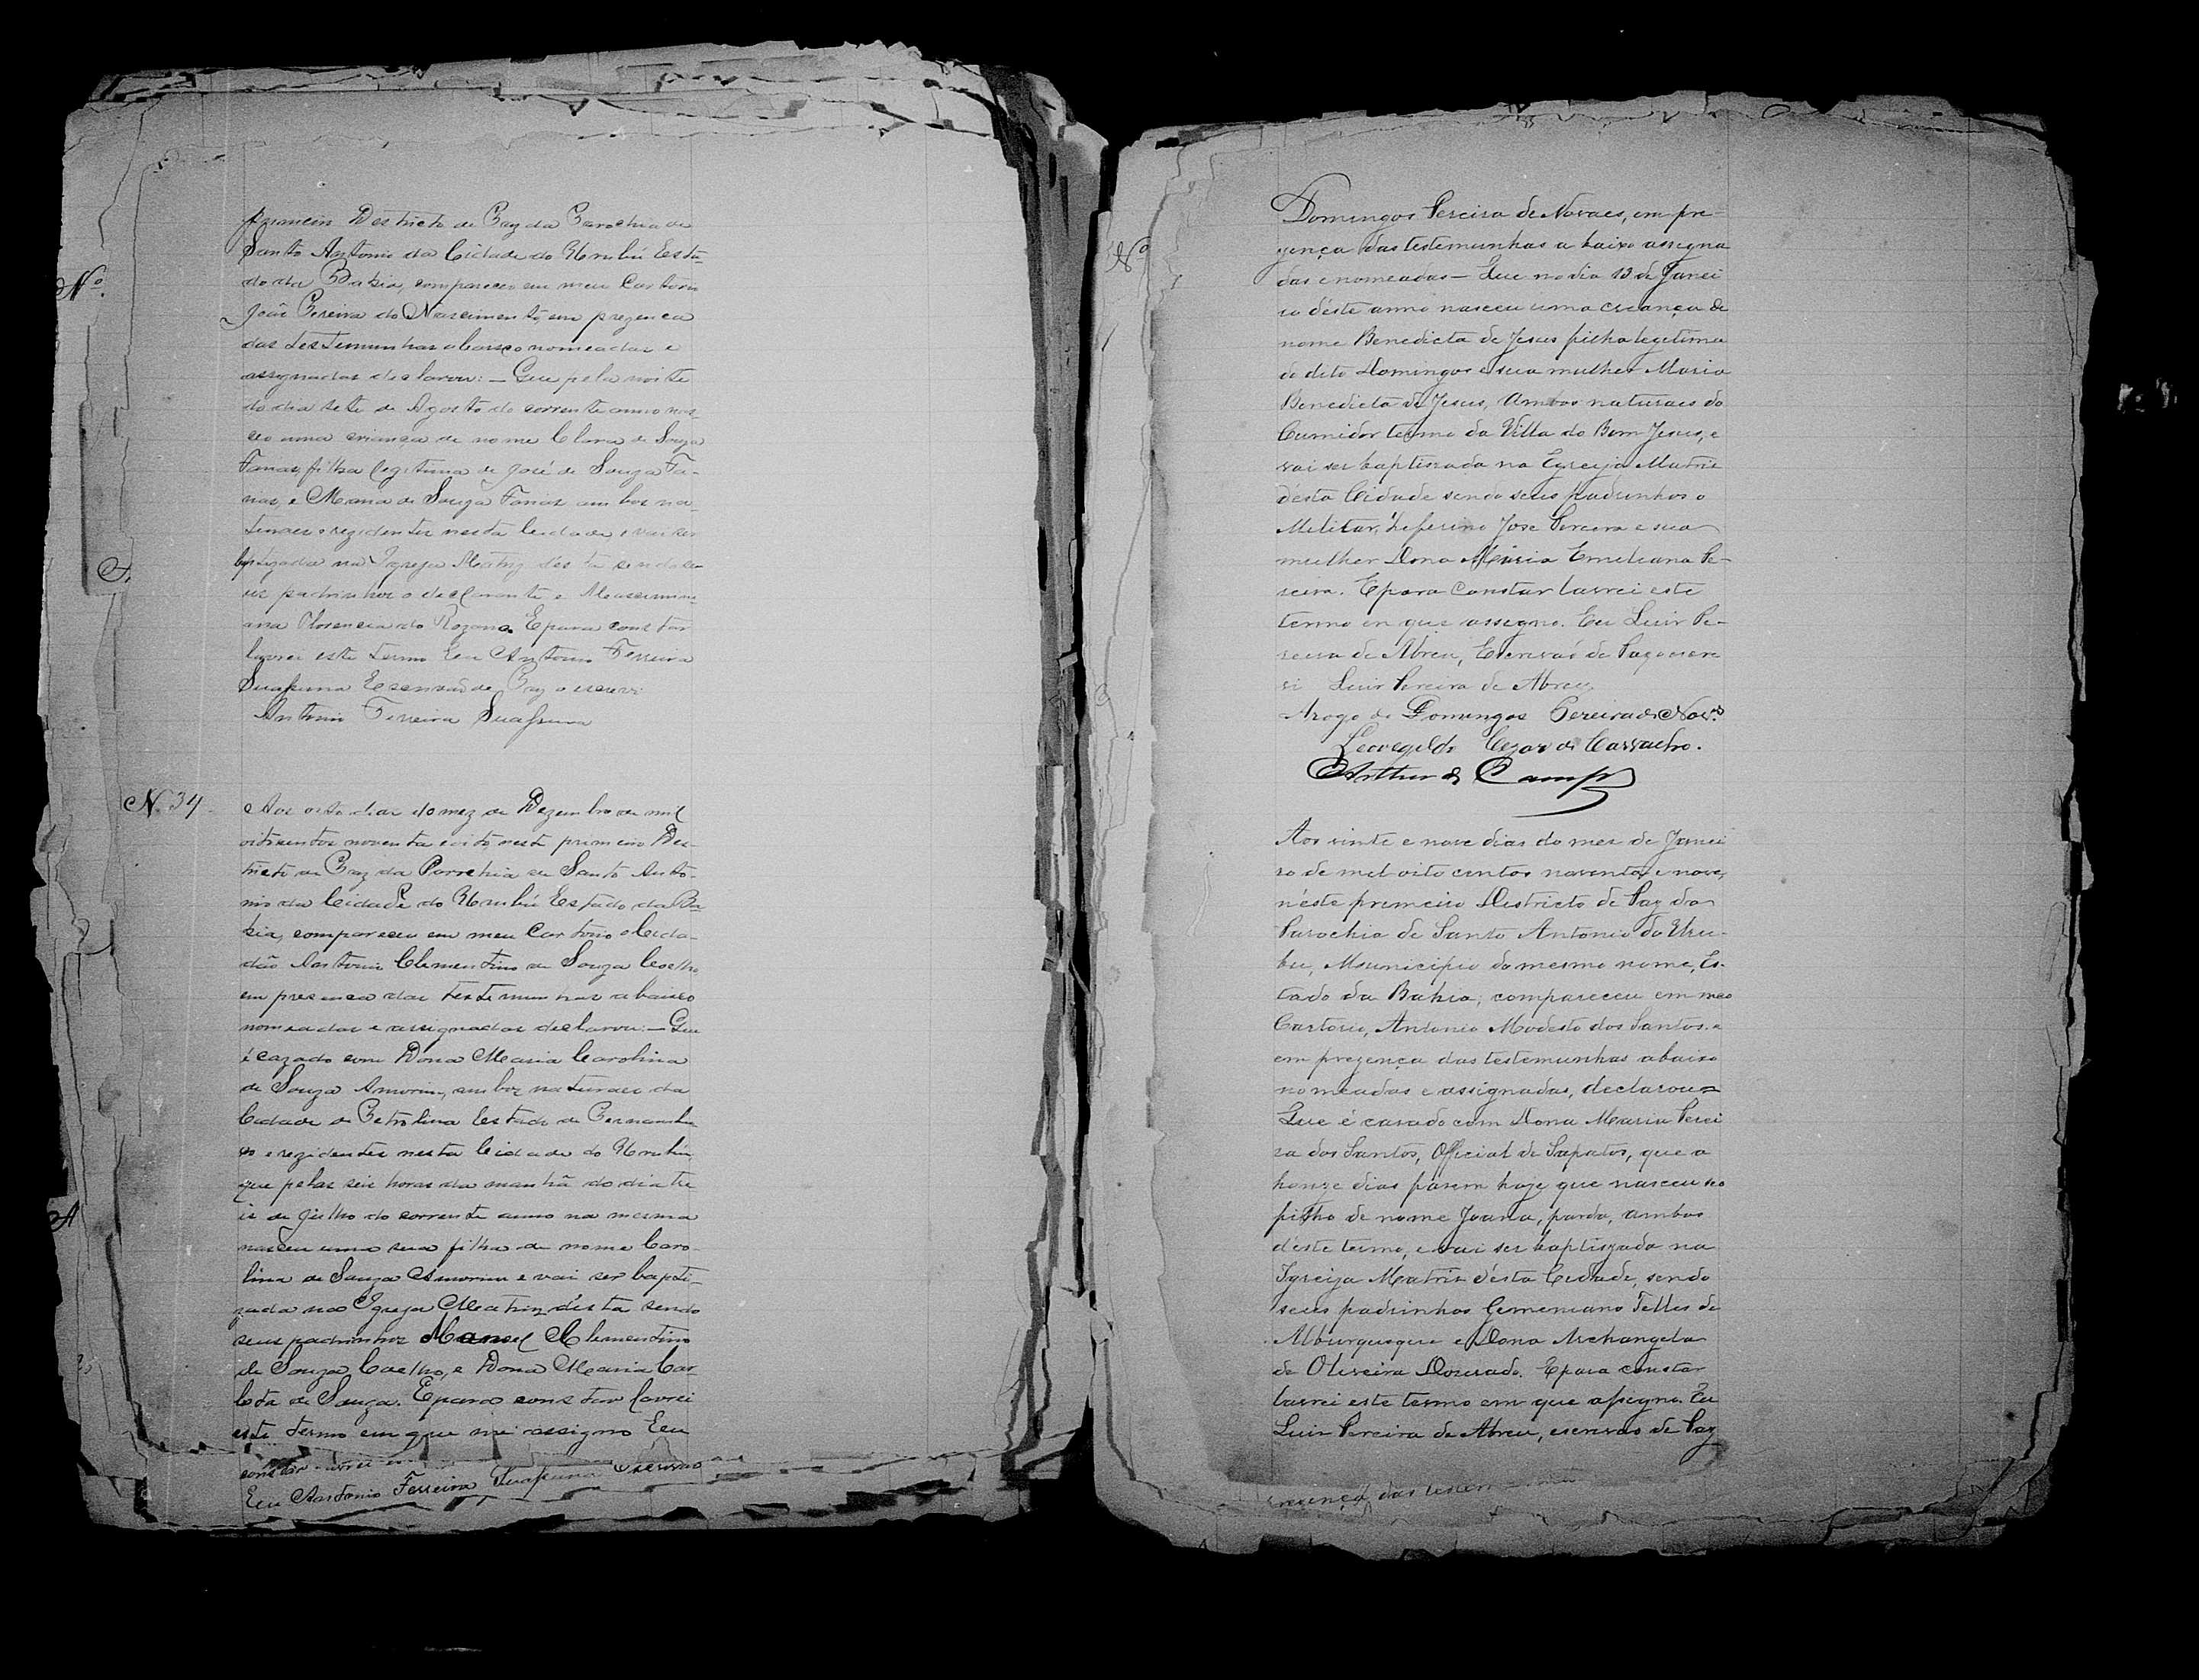 primeiro Destricto de Paz da Parochia de
Santo Antonio da Cidade do Urubú Esta-
do da Bahia, compareceu em meu Cartorio
João Pereira do Nascimento, em prezenca
das testemunhas abaixo nomeadas e
assignadas declarou: — Que pela noite
do dia sete de Agosto do corrente anno nas-
ceo uma criança de nome Clara de Souza
Farias, filha legitima de José de Souza Fa-
rias, e Maria de Souza Farias ambos na-
turaes e rezidentes nesta Cidade e vai ser
baptizada na Igreja Matriz desta sendo se-
us padrinhos o declarante e
Florencia do Rozario. E para constar
lavrei este termo Eu Antonio Ferreira
Suassuna Escrivão de Paz o escrevi
Antonio Ferreira Suassuna
N. 34
Aos oito dias do mez de Dezembro de mil
oitocentos noventa e oito, neste primeiro Des-
tricto de Paz da Parochia de Santo Anto-
nio da Cidade do Urubú Estado da Ba-
hia, compareceu em meu Cartorio o Cida-
dão Antonio Clementino de Souza Coelho
em presenca das testemunhas abaixo
nomeadas e assignadas declarou: — Que
é cazado com Dona Maria Carolina
de Souza Amorim, ambos naturaes da
Cidade de Petrolina Estado de Pernambu
co e rezidentes nesta Cidade do Urubú,
que pelas seis horas da manhã do dia tre
is de Julho do corrente anno na mesma
nasceu uma sua filha de nome Caro-
lina de Souza Amorim e vai ser bapti-
zada na Igreja Matriz désta sendo
seus padrinhos Manoel Clementino
de Souza Coelho, e Dona Maria Car
lota de Souza. E para constar lavrei
este termo em que me assigno Eu
constar
Eu Antonio Ferreira Suassuna Escrivão
Nº
Nº
Domingos Pereira de Novaes, em pre-
zença das testemunhas a baixo assigna
das e nomeadas — Que no dia 13 de Janei
ro déste anno nasceu uma creança de
nome Benedicta de Jesus filha legitima
do dito Domingos e sua mulher Maria
Benedicta de Jesus, Ambos naturaes do
termo da Villa do Bom Jesus, e
vai ser baptisada na Egreija Matris
désta Cidade sendo seus padrinhos o
Militar, Zeferino Jose Pereira e sua
mulher Dona Maria Emeliana Pe-
reira. E para constar lavrei este
termo en que assigno. Eu Luis Pe-
reira de Abreu, Escrivão de Paz o escre
vi Luis Pereira de Abreu
Arogo de Domingos Pereira de Nov.es
Leovegildo Cezar de Carvalho.
Arthur de Campos
Aos vinte e nove dias do mes de Janei
ro de mil oito centos noventa e nove,
néste premeiro Destricto de Paz da
Parochia de Santo Antonio do Uru-
bu, Mounicipio do mesmo nome, Es-
tado da Bahia, compareceu em meo
Cartorio, Antonio Modesto dos Santos e
em prezença das testemunhas abaixo
nomeadas e assignadas, declarou =
Que é casado com Dona Maria Perei
ra dos Santos, Official de Sapatos, que a
honze dias fasem hoje que nasceu no
filho de nome Joana, parda, ambos
déste termo, e vai ser baptiszada na
Igreija Matris désta Cidade, sendo
seus padrinhos Gemeniano Telles de
Alburquerque e Dona Archangela
de Oliveira Dourado. E para constar
lavrei este termo em que assigno. Eu
Luis Pereira de Abreu, escrivão de Paz
prezença das testem